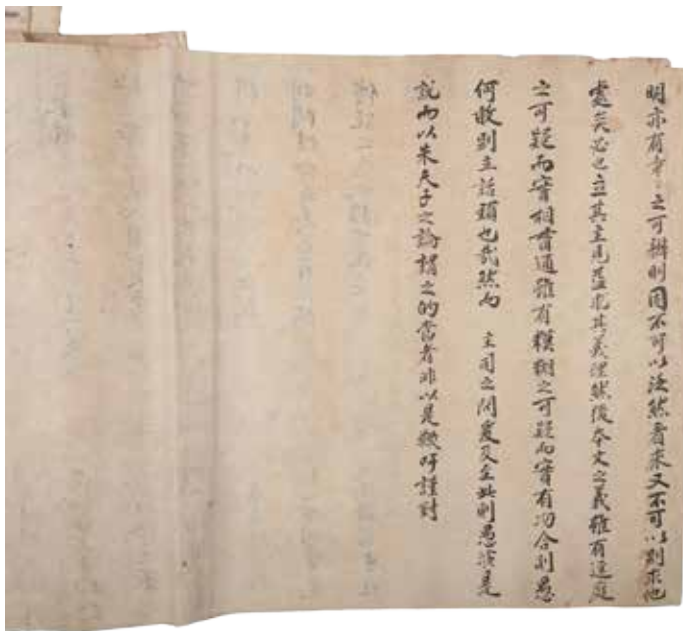 明亦有章〻之可辨則固不可以泛然看來又不可以別求他
處矣必也立其主見益求其義理然後本文之義雖有逕庭
之可疑而實相貫通雖有糢糊之可疑而實有沕合則愚
何敢別立話頭也哉然而 主司之問爰及至此則愚演是
說而以朱夫子之論謂之的當者非以是歟吁謹對